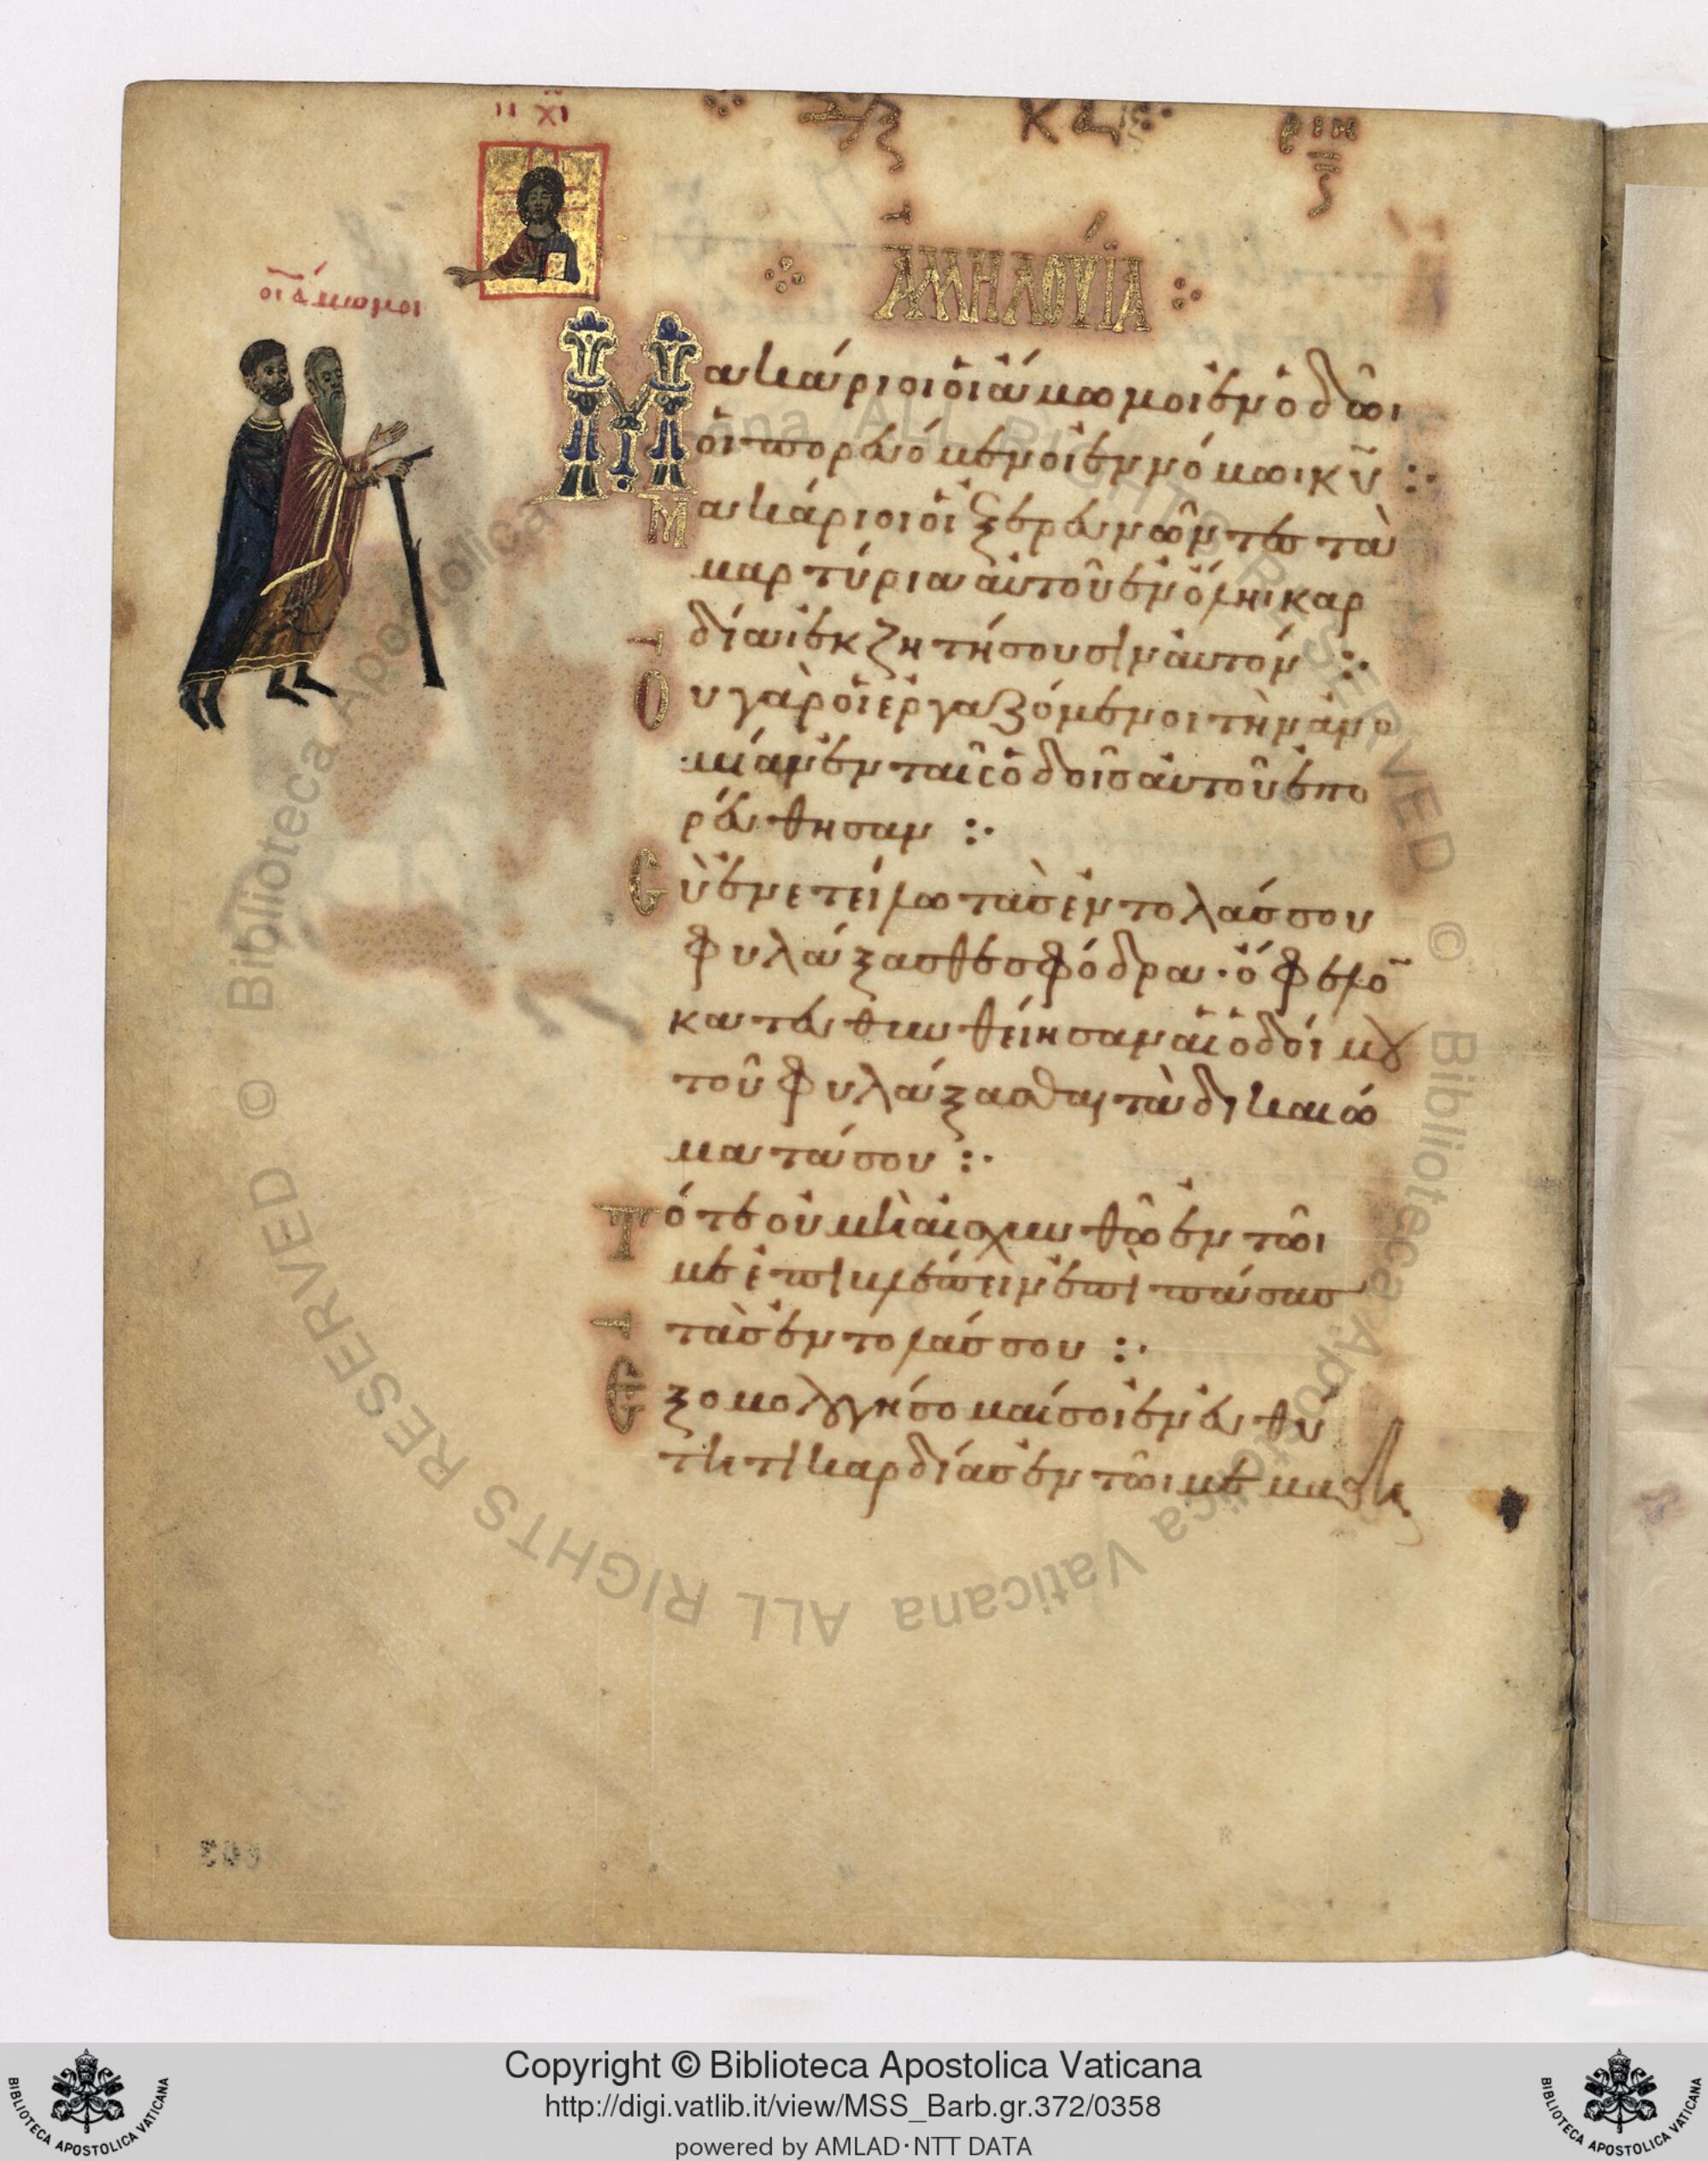 ιϲ χϲ
οἱ ἄμωμοι
ριη
ἈΛΛΗΛΟΎΪΑ
Μακάριοι οἱ ἄμωμοι ἐν ὁδῶι
οἱ πορευόμενοι ἐν νόμωι κυ :·
Μακάριοι οἱ ἐξερευνῶντες τὰ
μαρτύρια αὐτοῦ ἐν ὅληι καρ
δίαι ἐκζητήσουσιν αὐτόν :·
Οὐ γὰρ οἱ ἐργαζόμενοι τὴν ἀνο
μίαν ἐν ταῖς ὁδοῖς αὐτοῦ ἐπο
ρεύθησαν :·
Σὺ ἐνετείλω τὰς ἐντολάς σου
φυλάξασθε σφόδρα · ὄφελο
κατευθυνθείησαν αἱ ὁδοί μου
τοῦ φυλάξασθαι τὰ δικαιώ
ματά σου :·
Τότε οὐ μὴ αἰσχυνθῶ ἐν τῶι
με ἐπιβλέπειν ἐπὶ πάσας
τὰς ἐντολάς σου :·
Ἐξομολογήσομαί σοι ἐν εὐθύ
τητι καρδίας ἐν τῶι με μεμαθη
Biblioteca Apostolica Vaticana ALL RIGHTS RESERVED ©
Copyright © Biblioteca Apostolica Vaticana
http://digi.vatlib.it/view/MSS_Barb.gr.372/0358
powered by AMLAD·NTT DATA
BIBLIOTECA APOSTOLICA VATICANA
BIBLIOTECA APOSTOLICA VATICANA